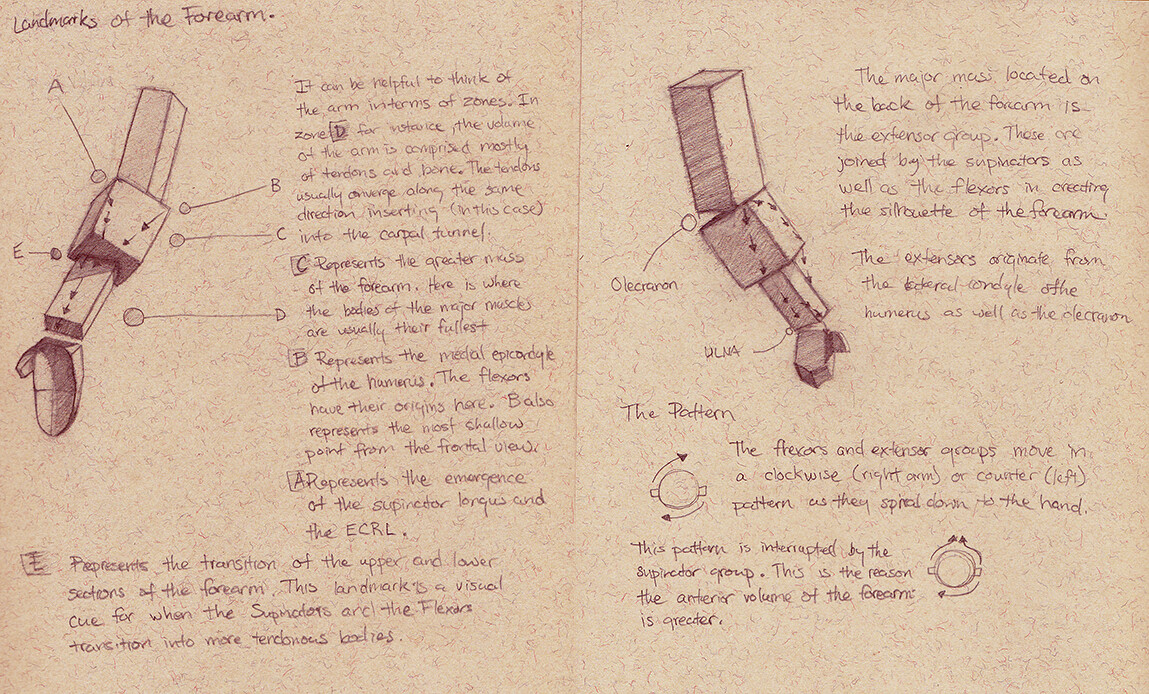 Landmarks of the Forearm.
A
B
C
E
D
It can be helpful to think of
the arm in terms of zones. In
zone D for instance, the volume
of the arm is comprised mostly
of tendons and bone. The tendons
usually converge along the same
direction inserting (in this case)
into the carpal tunnel.
C Represents the greater mass
of the forearm. Here is where
the bodies of the major muscles
are usually their fullest
B Represents the medial epicondyle
of the humerus. The flexors
have their origins here. B also
represents the most shallow
point from the frontal view.
A Represents the emergence
of the supinator longus and
the ECRL.
E Represents the transition of the upper and lower
sections of the forearm. This landmark is a visual
cue for when the Supinators and the Flexors
transition into more tendonous bodies.
Olecranon
ULNA
The major mass located on
the back of the forearm is
the extensor group. These are
joined by the supinators as
well as the flexors in creating
the silhouette of the forearm.
The extensors originate from
the lateral condyle of the
humerus as well as the olecranon
The Pattern
The flexors and extensor groups move in
a clockwise (right arm) or counter (left)
pattern as they spiral down to the hand.
This pattern is interrupted by the
supinator group. This is the reason
the anterior volume of the forearm
is greater.